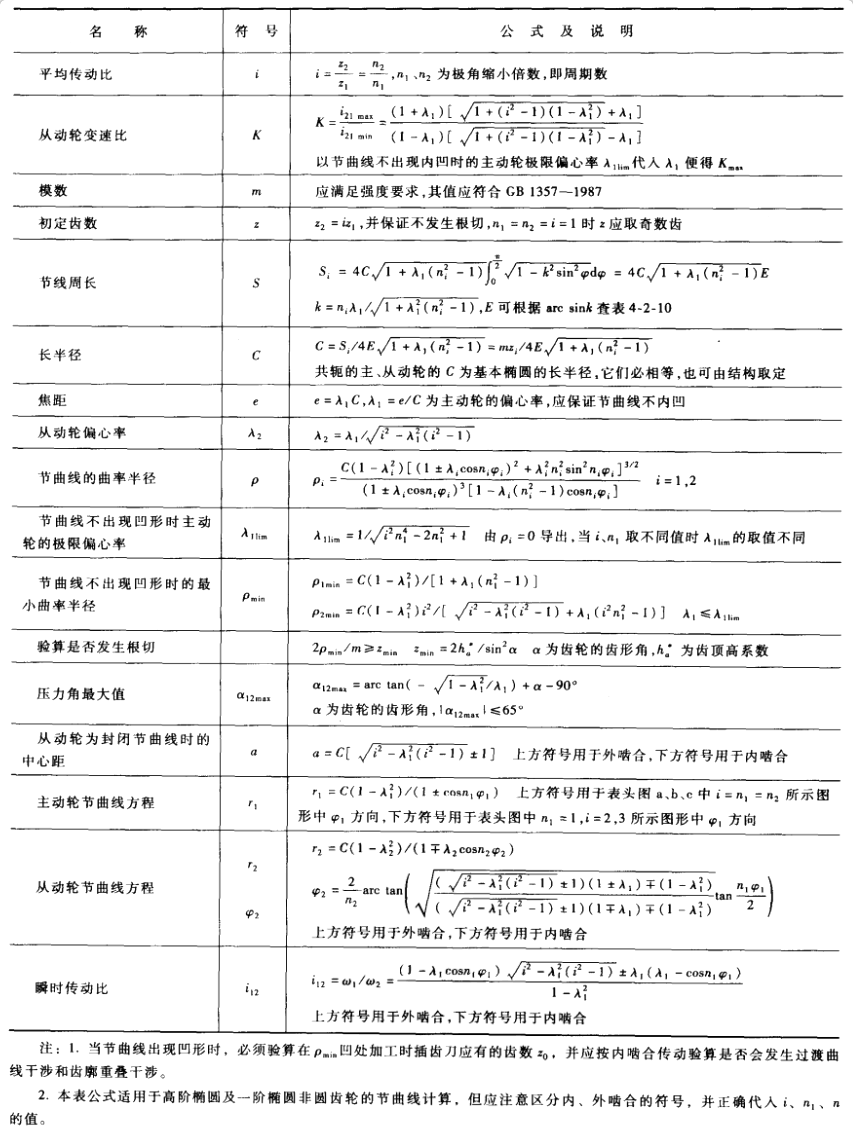 名 称 符 号 公 式 及 说 明
平均传动比 i i = z₂/z₁ = n₂/n₁ ,n₁、n₂ 为极角缩小倍数,即周期数
从动轮变速比 K K = i₂₁ max/i₂₁ min = (1 + λ₁)[√(1 + (i² - 1)(1 - λ₁²)) + λ₁] / (1 - λ₁)[√(1 + (i² - 1)(1 - λ₁²)) - λ₁]
以节曲线不出现内凹时的主动轮极限偏心率 λ₁lim代入 λ₁ 便得 Kmax
模数 m 应满足强度要求,其值应符合 GB 1357—1987
初定齿数 z z₂ = iz₁ ,并保证不发生根切,n₁ = n₂ = i = 1 时 z 应取奇数齿
节线周长 S Sᵢ = 4C√(1 + λ₁(nᵢ² - 1)) ∫₀^(π/2) √(1 - k²sin²φ)dφ = 4C√(1 + λ₁(nᵢ² - 1))E
k = nᵢλ₁/√(1 + λ₁²(nᵢ² - 1)) ,E 可根据 arc sink 查表 4-2-10
长半径 C C = Sᵢ/4E√(1 + λ₁(nᵢ² - 1)) = mzᵢ/4E√(1 + λ₁(nᵢ² - 1))
共轭的主、从动轮的 C 为基本椭圆的长半径,它们必相等,也可由结构取定
焦距 e e = λ₁C,λ₁ = e/C 为主动轮的偏心率,应保证节曲线不内凹
从动轮偏心率 λ₂ λ₂ = λ₁/√(i² - λ₁²(i² - 1))
节曲线的曲率半径 ρ ρᵢ = C(1 - λᵢ²)[(1 ± λᵢcosnᵢφᵢ)² + λᵢ²nᵢ²sin²nᵢφᵢ]^(3/2) / (1 ± λᵢcosnᵢφᵢ)³[1 - λᵢ(nᵢ² - 1)cosnᵢφᵢ] i = 1,2
节曲线不出现凹形时主动
轮的极限偏心率 λ₁lim λ₁lim = 1/√(i²n₁⁴ - 2n₁² + 1) 由 ρᵢ = 0 导出,当 i、n₁ 取不同值时 λ₁lim的取值不同
节曲线不出现凹形时的最
小曲率半径 ρmin ρ1min = C(1 - λ₁²)/[1 + λ₁(n₁² - 1)]
ρ2min = C(1 - λ₁²)i²/[√(i² - λ₁²(i² - 1)) + λ₁(i²n₁² - 1)] λ₁ ≤ λ₁lim
验算是否发生根切 2ρmin/m ≥ zmin zmin = 2hₐ*/sin²α α 为齿轮的齿形角,hₐ* 为齿顶高系数
压力角最大值 α12max α12max = arc tan( - √(1 - λ₁²)/λ₁) + α - 90°
α 为齿轮的齿形角,|α12max| ≤ 65°
从动轮为封闭节曲线时的
中心距 a a = C[√(i² - λ₁²(i² - 1)) ± 1] 上方符号用于外啮合,下方符号用于内啮合
主动轮节曲线方程 r₁ r₁ = C(1 - λ₁²)/(1 ± cosn₁φ₁) 上方符号用于表头图 a、b、c 中 i = n₁ = n₂ 所示图
形中 φ₁ 方向,下方符号用于表头图中 n₁ = 1,i = 2,3 所示图形中 φ₁ 方向
r₂ r₂ = C(1 - λ₂²)/(1 ∓ λ₂cosn₂φ₂)
从动轮节曲线方程 φ₂ φ₂ = 2/n₂ arc tan(√((√(i² - λ₁²(i² - 1)) ± 1)(1 ± λ₁) ∓ (1 - λ₁²) / (√(i² - λ₁²(i² - 1)) ± 1)(1 ∓ λ₁) ∓ (1 - λ₁²)) tan n₁φ₁/2)
上方符号用于外啮合,下方符号用于内啮合
瞬时传动比 i₁₂ i₁₂ = ω₁/ω₂ = (1 - λ₁cosn₁φ₁)√(i² - λ₁²(i² - 1)) ± λ₁(λ₁ - cosn₁φ₁) / 1 - λ₁²
上方符号用于外啮合,下方符号用于内啮合
注:1. 当节曲线出现凹形时,必须验算在 ρmin凹处加工时插齿刀应有的齿数 z₀,并应按内啮合传动验算是否会发生过渡曲
线干涉和齿廓重叠干涉。
2. 本表公式适用于高阶椭圆及一阶椭圆非圆齿轮的节曲线计算,但应注意区分内、外啮合的符号,并正确代入 i、n₁、n
的值。